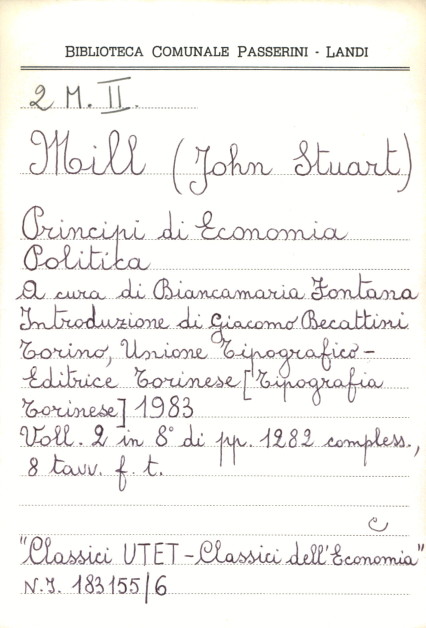 BIBLIOTECA COMUNALE PASSERINI - LANDI
2 M. II.
Mill (John Stuart)
Principi di Economia
Politica
A cura di Biancamaria Fontana
Introduzione di Giacomo Becattini
Torino, Unione Tipografico-
Editrice Torinese [Tipografia
Torinese] 1983
Voll. 2 in 8° di pp. 1282 compless.,
8 tavv. f. t.
C
"Classici UTET - Classici dell'Economia"
N.I. 183155/6